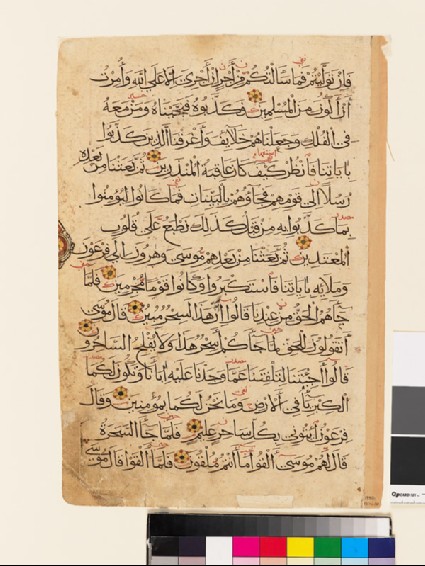 فان توليتم فما سألتكم من أجر إن أجري إلا على الله وأمرت
أن أكون من المسلمين فكذبوه فنجيناه ومن معه
في الفلك وجعلناهم خلائف وأغرقنا الذين كذبوا
بآياتنا فانظر كيف كان عاقبة المنذرين ثم بعثنا من بعده
رسلا إلى قومهم فجاؤهم بالبينات فما كانوا ليؤمنوا
بما كذبوا به من قبل كذلك نطبع على قلوب
المعتدين ثم بعثنا من بعدهم موسى وهرون إلى فرعون
وملائه بآياتنا فاستكبروا وكانوا قوما مجرمين فلما
جاءهم الحق من عندنا قالوا إن هذا لسحر مبين قال موسى
أتقولون للحق لما جاءكم أسحر هذا ولا يفلح الساحرون
قالوا أجئتنا لتلفتنا عما وجدنا عليه آباءنا وتكون لكما
الكبرياء في الأرض وما نحن لكما بمؤمنين وقال
فرعون ائتوني بكل ساحر عليم فلما جاء السحرة
قال لهم موسى ألقوا ما أنتم ملقون فلما ألقوا قال موسى